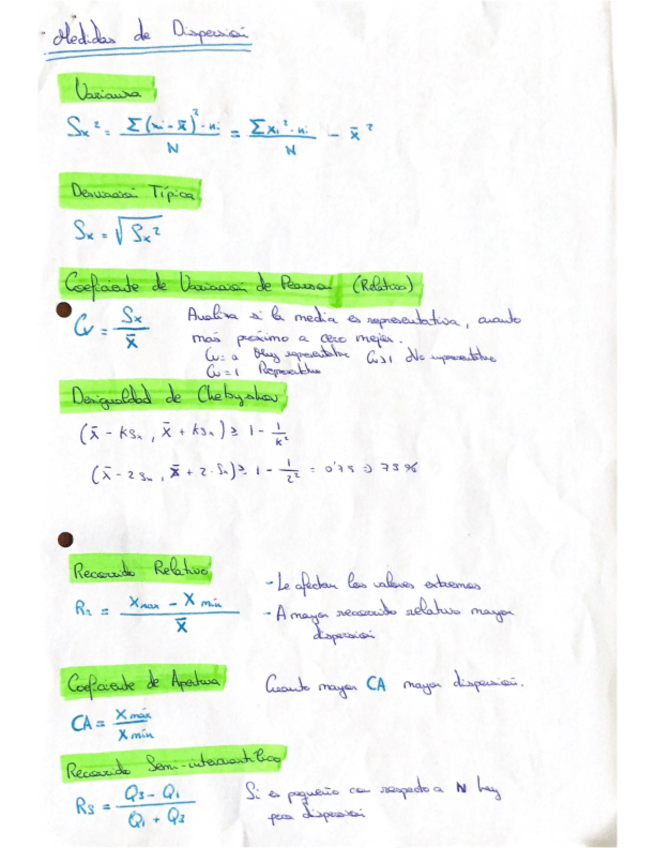 Medidas de Dispersión
Varianza
Sx² = Σ(xi - x̄)²·ni / N = Σxi²·ni / N - x̄²
Desviación Típica
Sx = √Sx²
Coeficiente de Variación de Pearson (Relativo)
Cv = Sx / x̄
Analiza si la media es representativa, cuanto
más próximo a cero mejor.
Cv = 0 Muy representativa Cv>1 No representativa
Cv = 1 Representativa
Desigualdad de Chebyshov
(x̄ - KSx, x̄ + KSx) ≥ 1 - 1/K²
(x̄ - 2Sx, x̄ + 2·Sx) ≥ 1 - 1/2² = 0'75 ⇒ 75%
Recorrido Relativo
R2 = Xmax - Xmín / x̄
- Le afectan los valores extremos
- A mayor recorrido relativo mayor
dispersión
Coeficiente de Apertura
Cuanto mayor CA mayor dispersión.
CA = Xmáx / Xmín
Recorrido Semi-intercuartílico
R3 = Q3 - Q1 / Q1 + Q3
Si es pequeño con respecto a N hay
poca dispersión